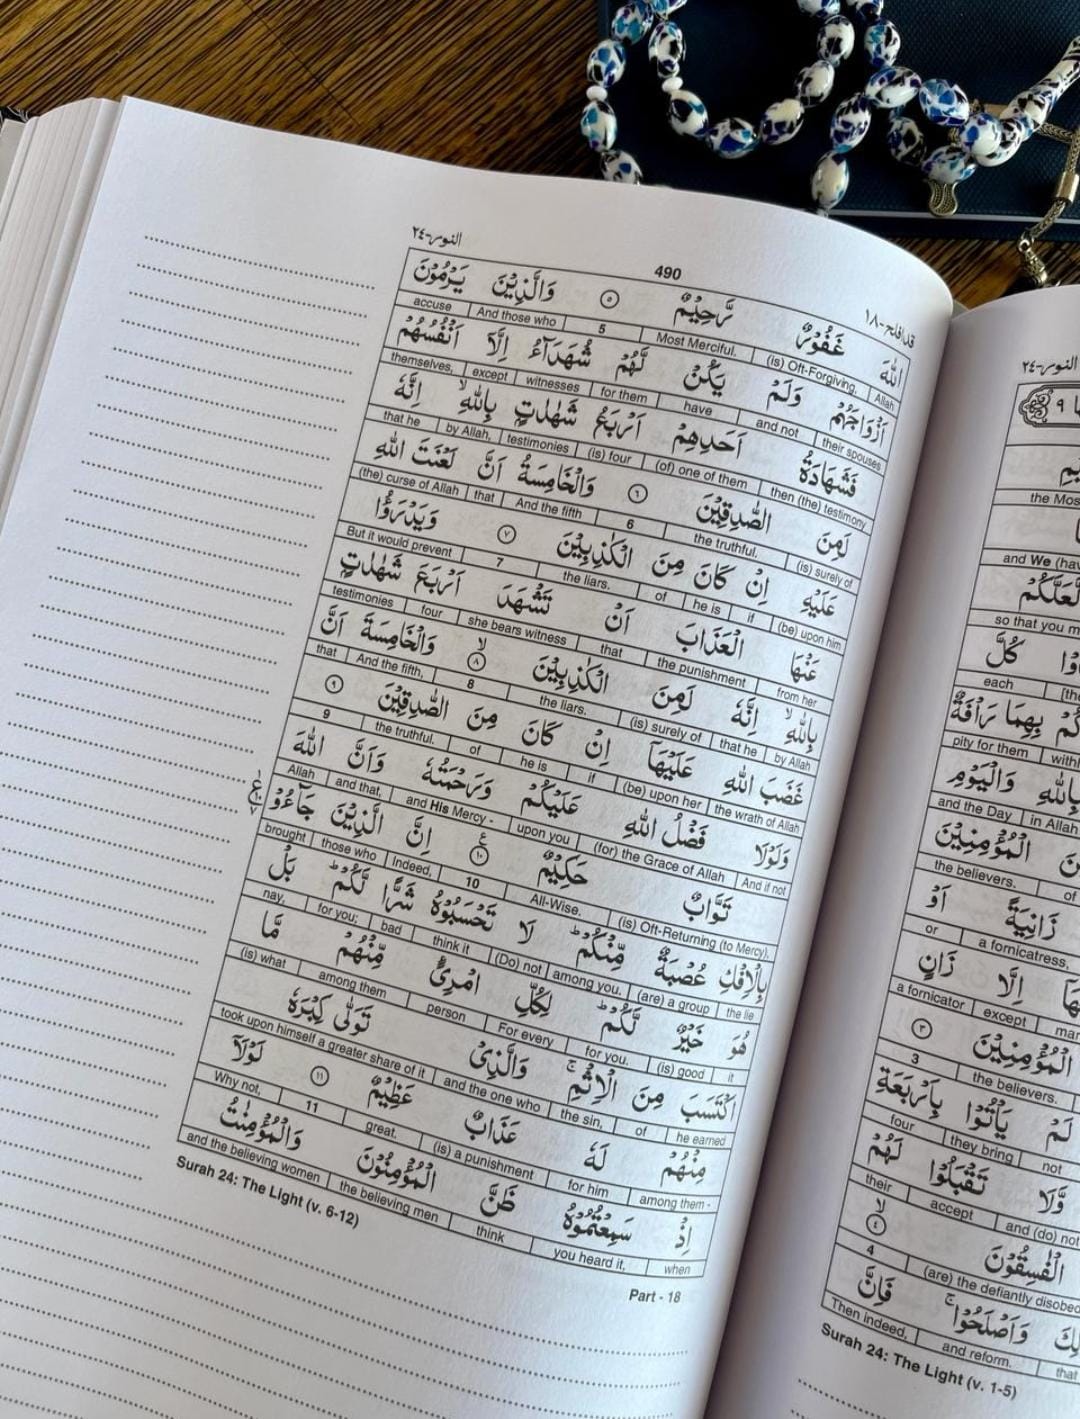 النور-٢٤ 490 قد افلح-١٨
اللّٰهَ غَفُوْرٌ رَّحِيْمٌ ٥ وَالَّذِيْنَ يَرْمُوْنَ
Allah (is) Oft-Forgiving, Most Merciful. 5 And those who accuse
اَزْوَاجَهُمْ وَلَمْ يَكُنْ لَّهُمْ شُهَدَآءُ اِلَّآ اَنْفُسُهُمْ
their spouses and not have for them witnesses except themselves,
فَشَهَادَةُ اَحَدِهِمْ اَرْبَعُ شَهٰدٰتٍ بِاللّٰهِ ۙ اِنَّهٗ
then (the) testimony (of) one of them (is) four testimonies by Allah, that he
لَمِنَ الصّٰدِقِيْنَ ٦ وَالْخَامِسَةُ اَنَّ لَعْنَتَ اللّٰهِ
(is) surely of the truthful. 6 And the fifth that (the) curse of Allah
عَلَيْهِ اِنْ كَانَ مِنَ الْكٰذِبِيْنَ ٧ وَيَدْرَؤُا
(be) upon him if he is of the liars. 7 But it would prevent
عَنْهَا الْعَذَابَ اَنْ تَشْهَدَ اَرْبَعَ شَهٰدٰتٍ
from her the punishment that she bears witness four testimonies
بِاللّٰهِ ۙ اِنَّهٗ لَمِنَ الْكٰذِبِيْنَ ٨ ۙ وَالْخَامِسَةَ اَنَّ
by Allah that he (is) surely of the liars. 8 And the fifth, that
غَضَبَ اللّٰهِ عَلَيْهَآ اِنْ كَانَ مِنَ الصّٰدِقِيْنَ ٩
the wrath of Allah (be) upon her if he is of the truthful. 9
وَلَوْلَا فَضْلُ اللّٰهِ عَلَيْكُمْ وَرَحْمَتُهٗ وَاَنَّ اللّٰهَ
And if not (for) the Grace of Allah upon you and His Mercy - and that, Allah
تَوَّابٌ حَكِيْمٌ ١٠ ع اِنَّ الَّذِيْنَ جَآءُوْ
(is) Oft-Returning (to Mercy), All-Wise. 10 Indeed, those who brought
بِالْاِفْكِ عُصْبَةٌ مِّنْكُمْ ؕ لَا تَحْسَبُوْهُ شَرًّا لَّكُمْ ؕ بَلْ
the lie (are) a group among you. (Do) not think it bad for you; nay,
هُوَ خَيْرٌ لَّكُمْ ؕ لِكُلِّ امْرِئٍ مِّنْهُمْ مَّا
it (is) good for you. For every person among them (is) what
اكْتَسَبَ مِنَ الْاِثْمِ ۚ وَالَّذِيْ تَوَلّٰى كِبْرَهٗ
he earned of the sin, and the one who took upon himself a greater share of it
مِنْهُمْ لَهٗ عَذَابٌ عَظِيْمٌ ١١ لَوْلَآ
among them - for him (is) a punishment great. 11 Why not,
اِذْ سَمِعْتُمُوْهُ ظَنَّ الْمُؤْمِنُوْنَ وَالْمُؤْمِنٰتُ
when you heard it, think the believing men and the believing women
Surah 24: The Light (v. 6-12) Part - 18
النور-٢٤
٩
the Mos
and We (hav
لَّعَلَّكُمْ
so that you m
كُلَّ
each
بِهِمَا رَاْفَةٌ
pity for them withh
بِاللّٰهِ وَالْيَوْمِ
in Allah and the Day
الْمُؤْمِنِيْنَ
of the believers.
زَانِيَةً اَوْ
a fornicatress, or
اِلَّا زَانٍ
except a fornicator
الْمُؤْمِنِيْنَ ٣
the believers. 3
لَمْ يَاْتُوْا بِاَرْبَعَةِ
not they bring four
وَّلَا تَقْبَلُوْا لَهُمْ
and (do) not accept their
الْفٰسِقُوْنَ ٤ ۙ
(are) the defiantly disobed 4
وَاَصْلَحُوْا ۚ فَاِنَّ
that and reform. Then indeed,
Surah 24: The Light (v. 1-5)